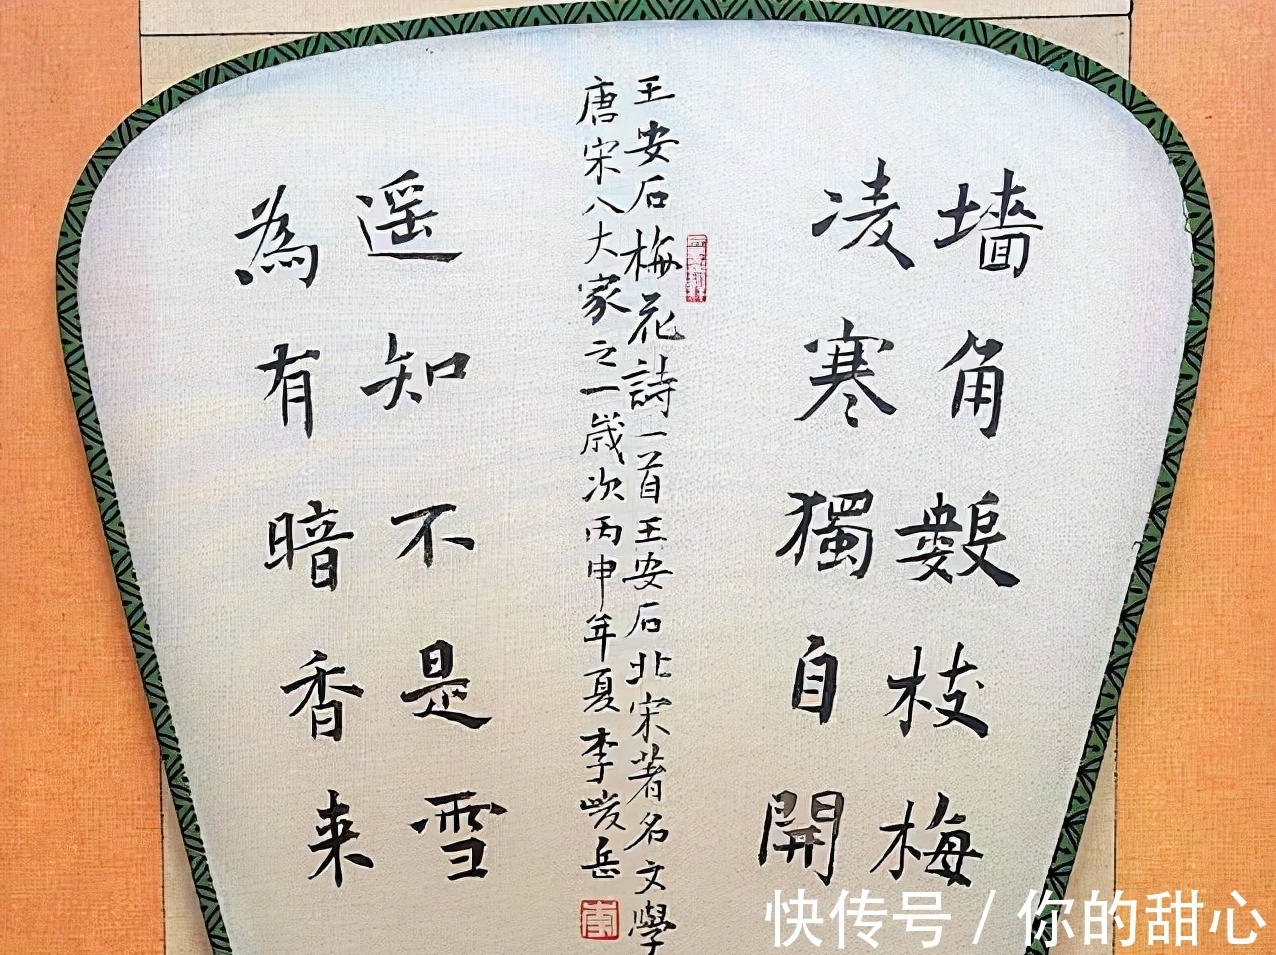 墙角數枝梅
凌寒獨自開
王安石梅花詩一首王安石北宋著名文學
唐宋八大家之一歲次丙申年夏李峻岳
遥知不是雪
為有暗香来
快传号 / 你的甜心